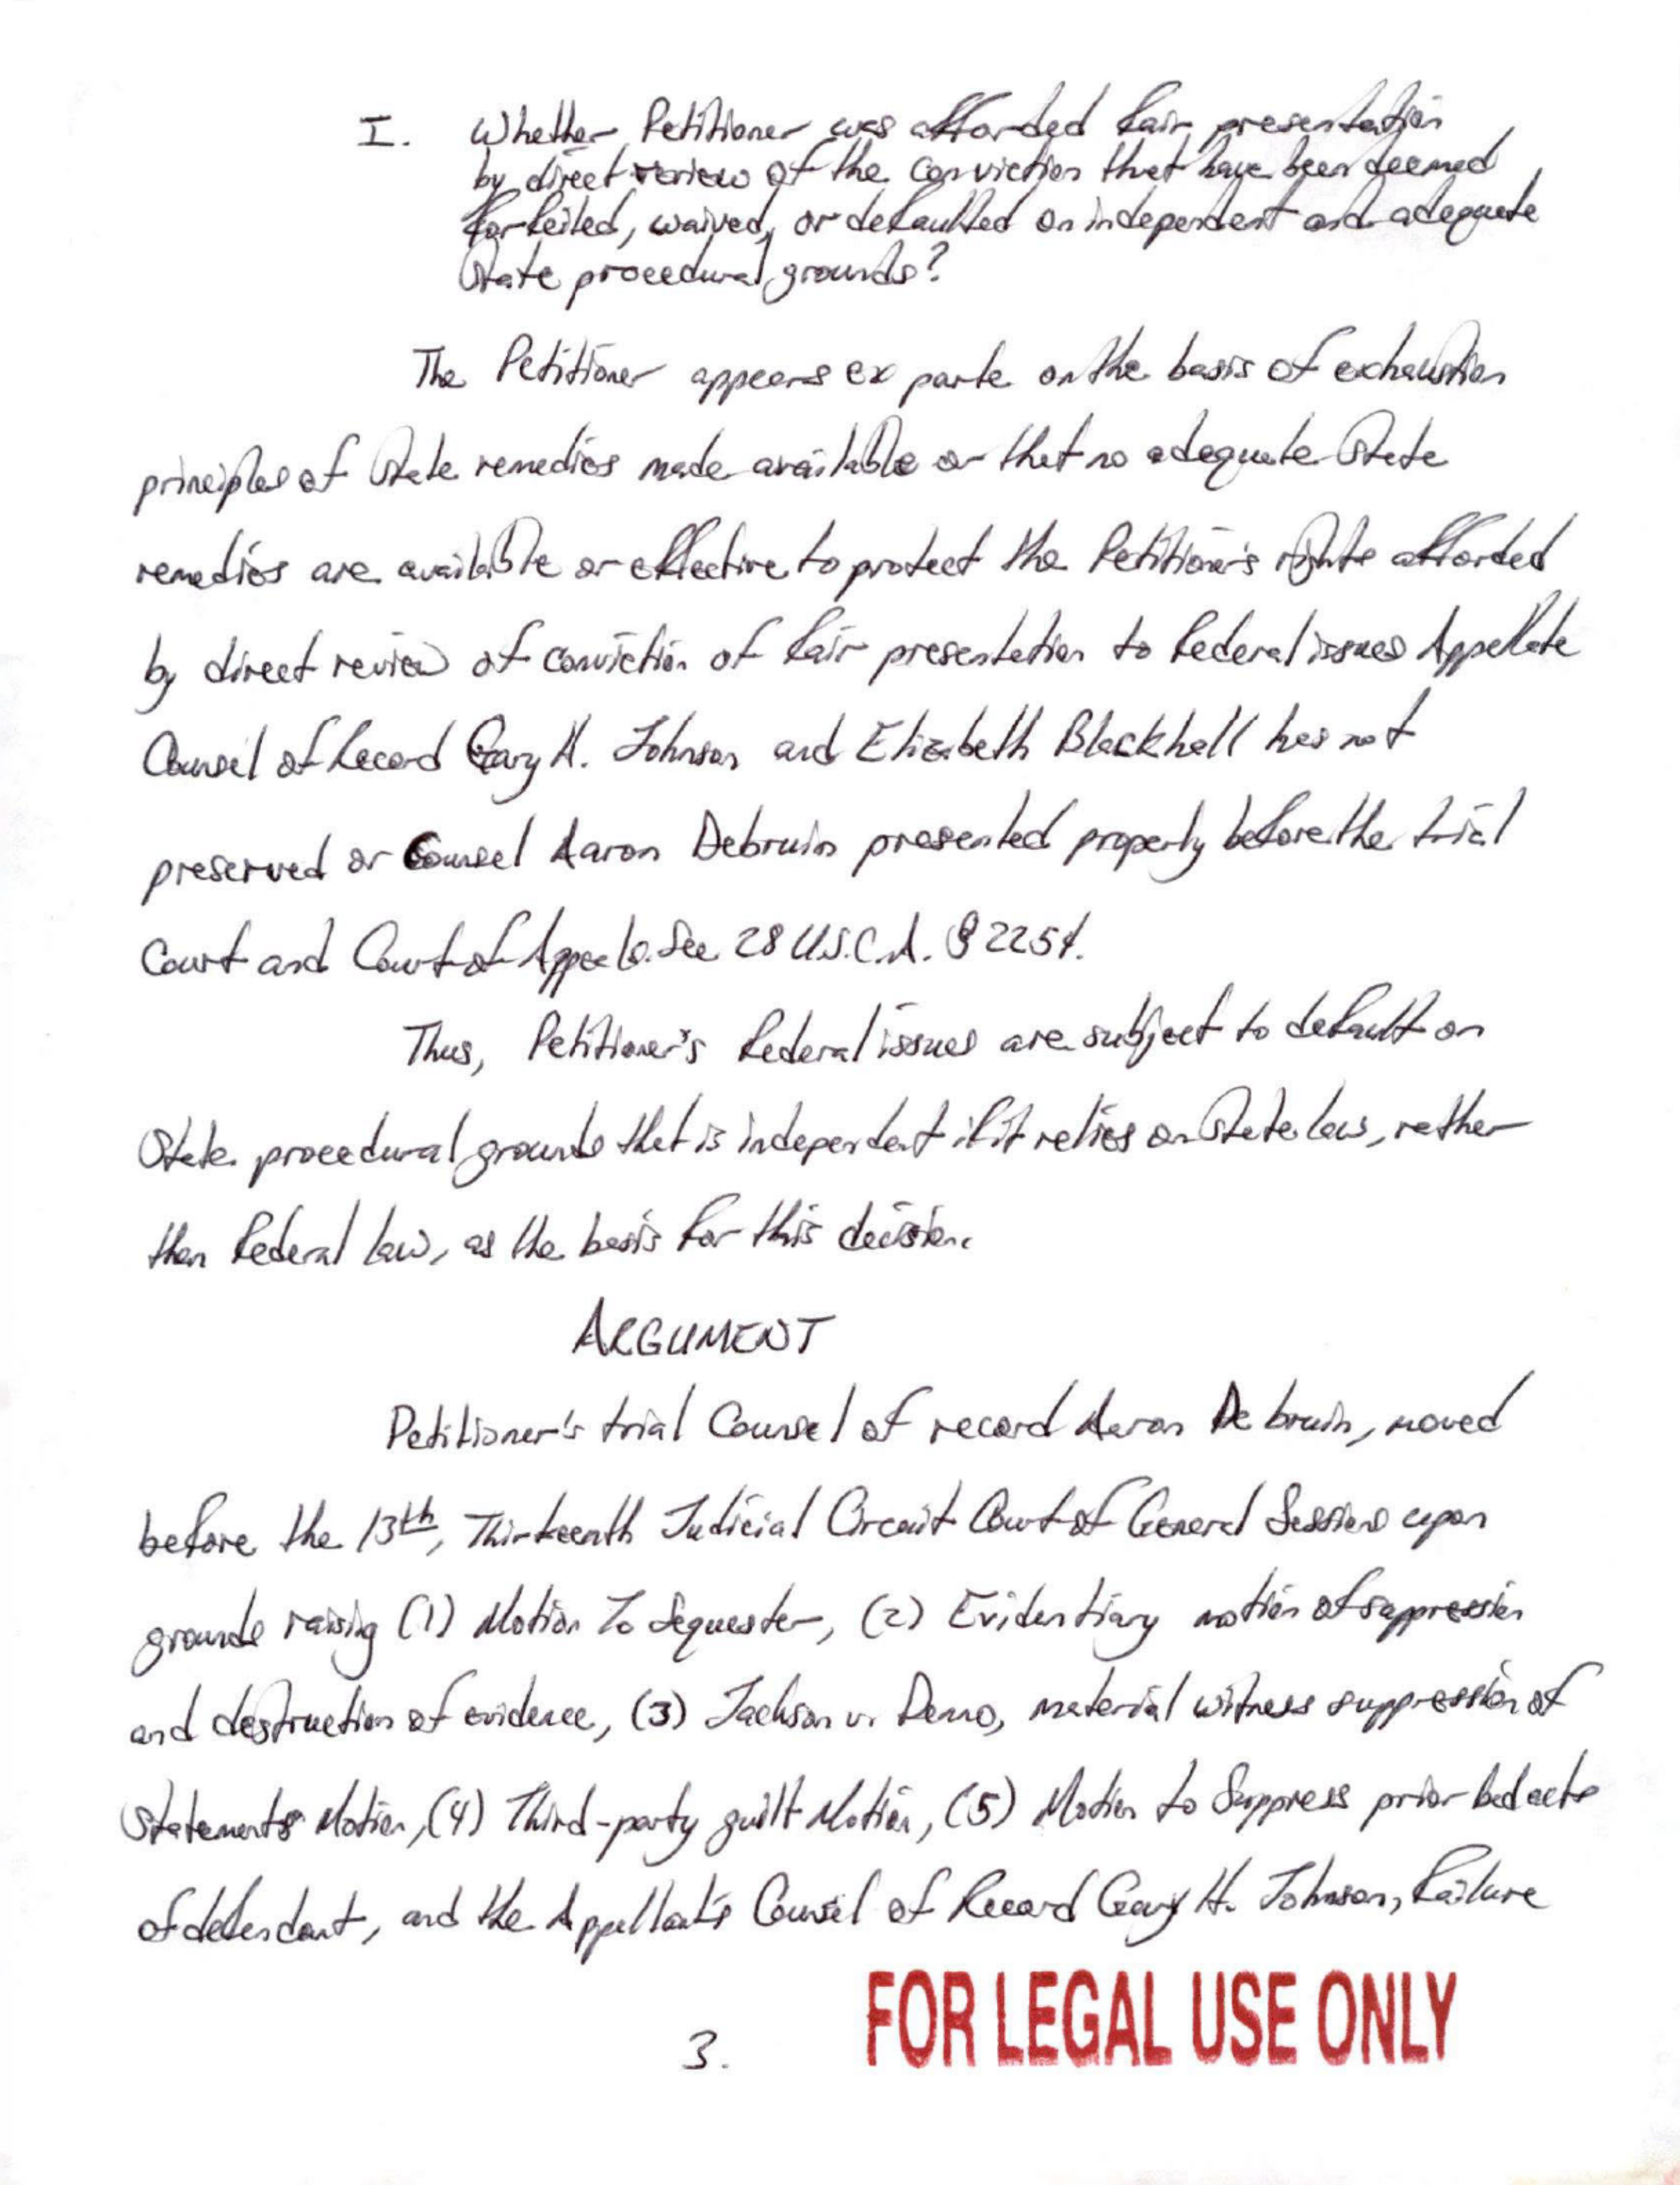 I. Whether Petitioner was afforded fair presentation
by direct review of the conviction that have been deemed
forfeited, waived, or defaulted on independent and adequate
State procedural grounds?
The Petitioner appears ex parte on the basis of exhaustion
principles of State remedies made available or that no adequate State
remedies are available or effective to protect the Petitioner's rights afforded
by direct review of conviction of fair presentation to federal issues Appellate
Counsel of Record Gary H. Johnson and Elizabeth Blackhall has not
preserved or Counsel Aaron Debruin presented properly before the trial
Court and Court of Appeals. See 28 U.S.C.A. § 2254.
Thus, Petitioner's federal issues are subject to default on
State procedural grounds that is independent if it relies on State law, rather
than federal law, as the basis for this decision.
ARGUMENT
Petitioner's trial Counsel of record Aaron De bruin, moved
before the 13th, Thirteenth Judicial Circuit Court of General Sessions upon
grounds raising (1) Motion To Sequester, (2) Evidentiary motion of suppression
and destruction of evidence, (3) Jackson v. Denno, material witness suppression of
Statements Motion, (4) Third-party guilt Motion, (5) Motion to Suppress prior bad acts
of defendant, and the Appellant's Counsel of Record Gary H. Johnson, failure
3.
FOR LEGAL USE ONLY